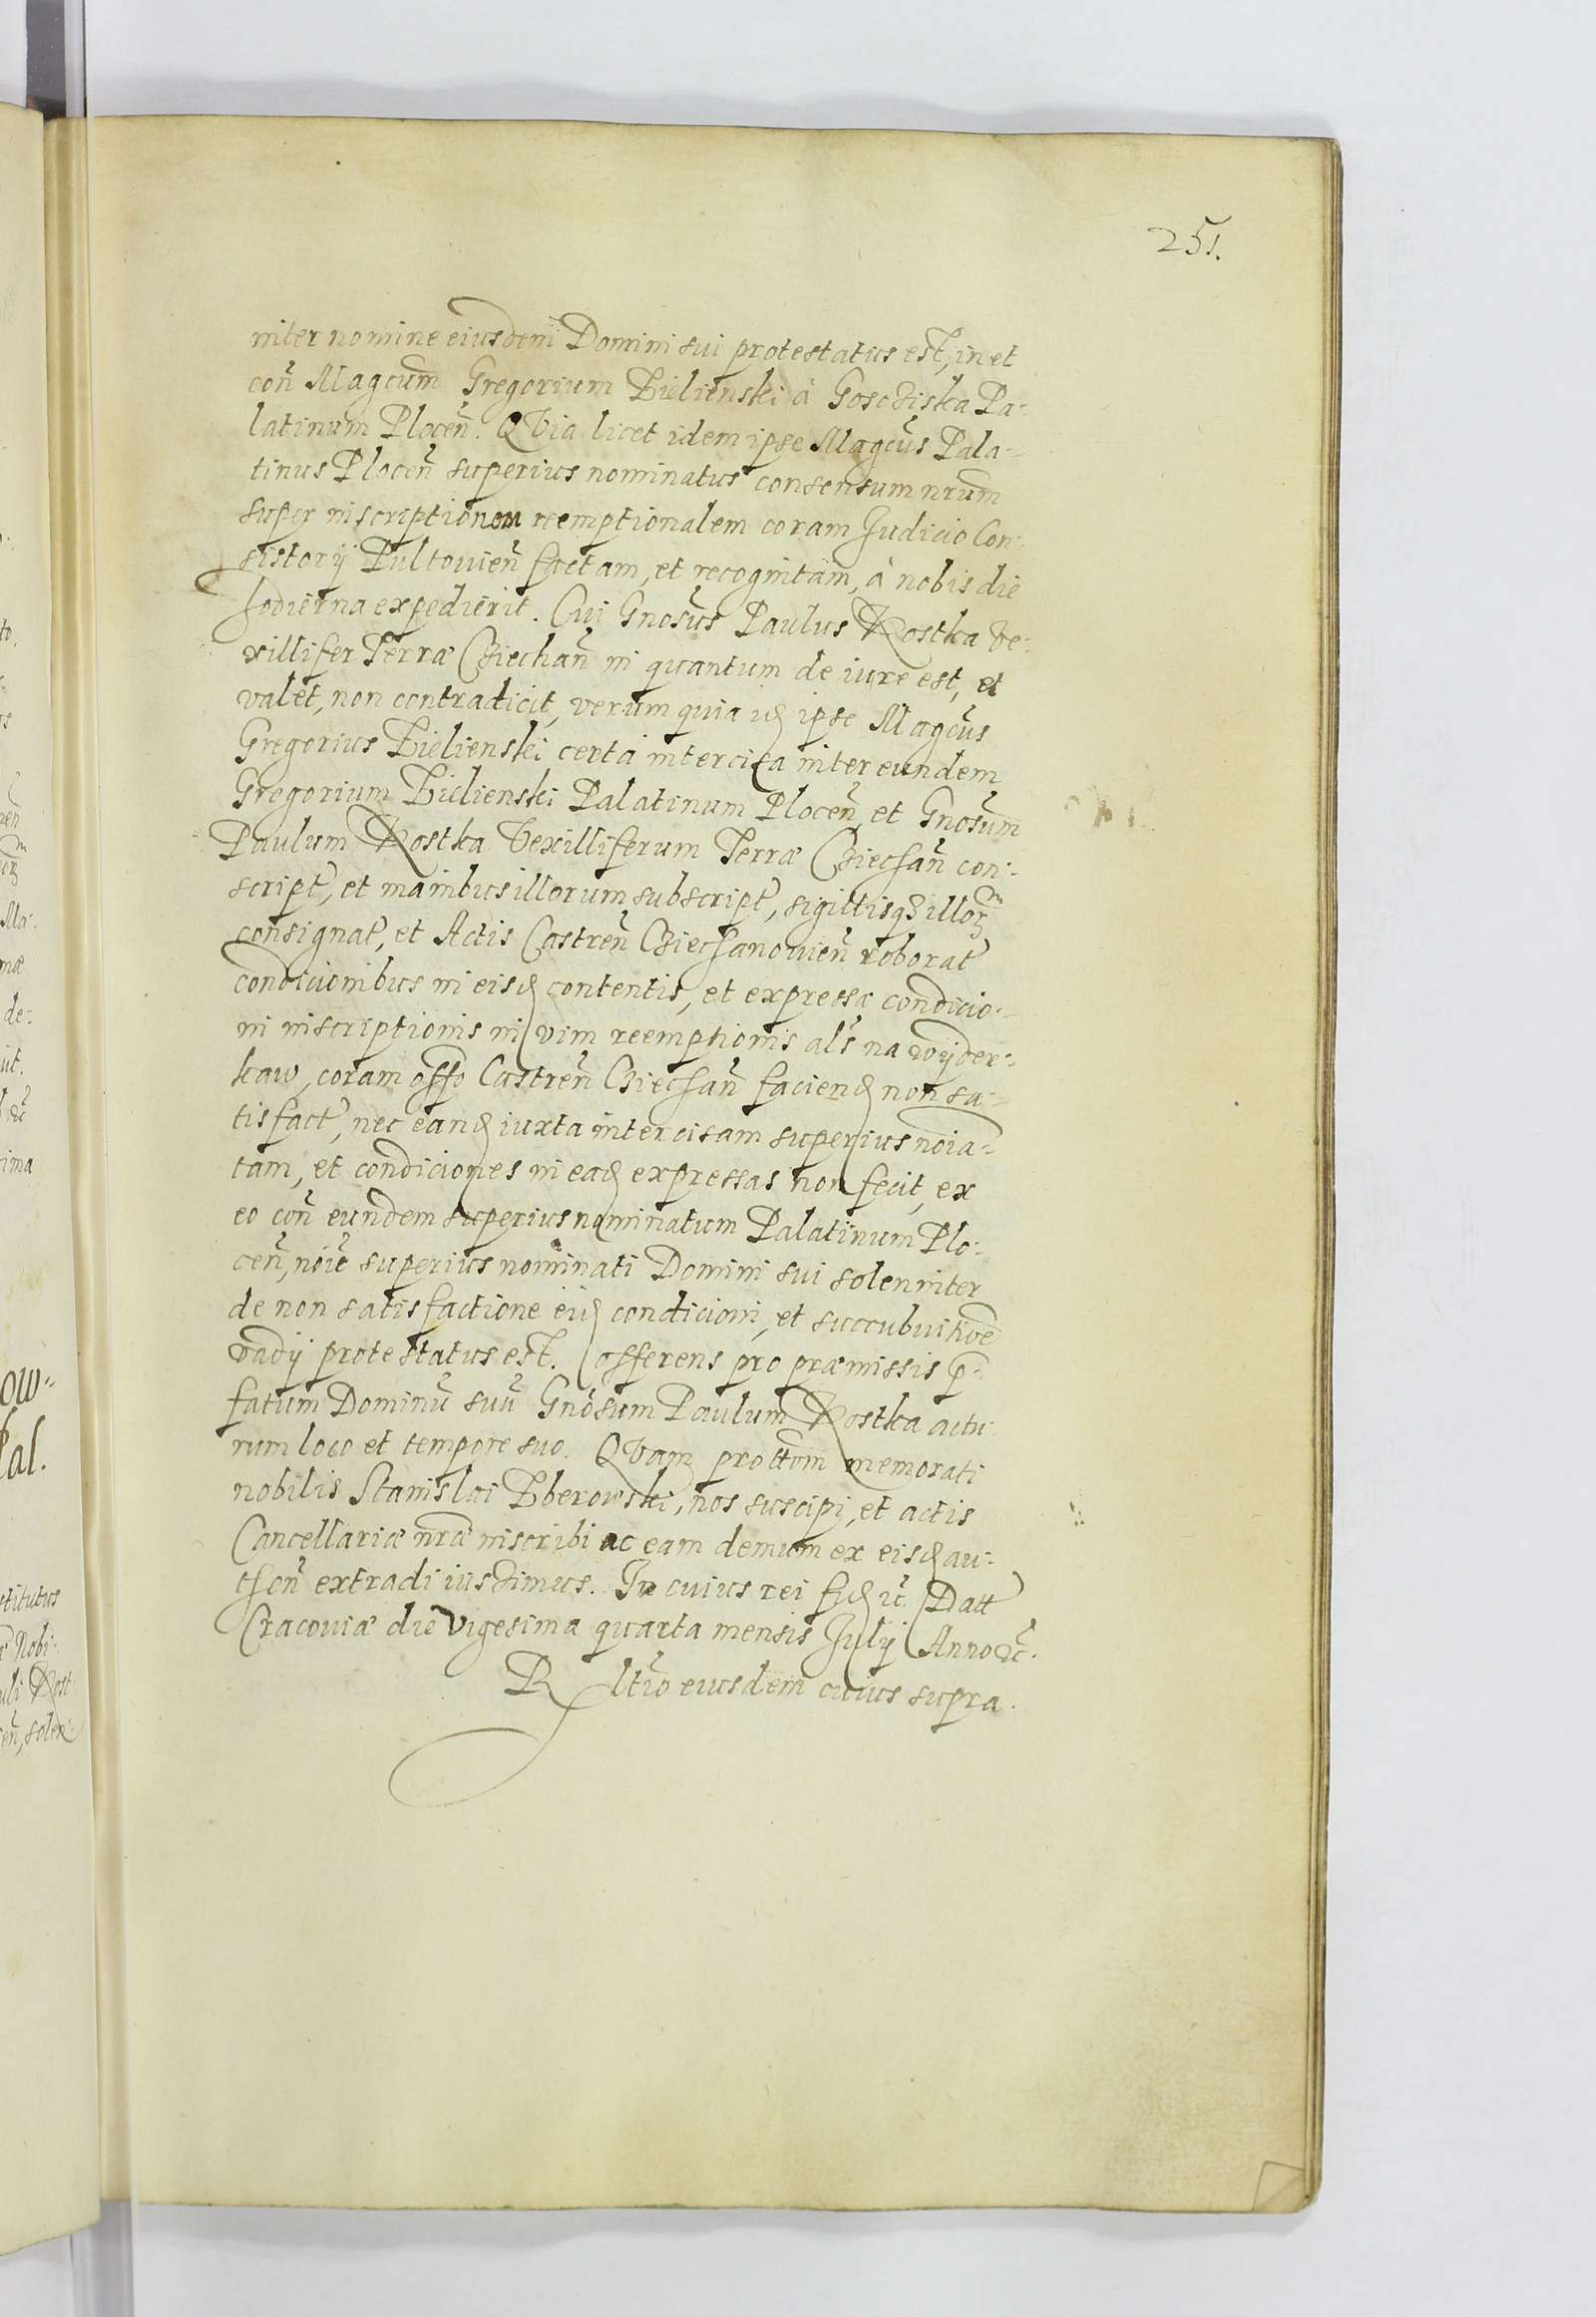 251.
niter nomine eiusdem Domini sui protestatus est, in et
coñ Magcum̃ Gregorium Zielienski à Goscziska Pa-
latinum Plocen̄. QVia licet idem ipse Magcūs Pala-
tinus Plocen̄ superius nominatus consensum nrūm
super inscriptionem reemptionalem coram Judicio Con-
sistorij Pultouien̄ factam, et recognitam, à nobis die
hodierna expedierit. Cui Gnosūs Paulus Kostka Ve-
xillifer Terræ Cziechan̄ in quantum de iure est, et
valet, non contradicit, verum quia idꝫ ipse Magcūs
Gregorius Zielienski certa intercisa inter eundem
Gregorium Zielienski Palatinum Plocen̄, et Gnosūm
Paulum Kostka Vexilliferum Terræ Cziechan̄ con-
script̄, et manibus illorum subscript̄, sigillisqꝫ illorꝫ m
consignat̄, et Actis Castren̄ Cziechanouien̄ roborat̄
condicionibus in eisdꝫ contentis, et expressæ condicio-
ni inscriptionis in vim reemptionis als̄ na wyder-
kaw, coram offo Castren̄ Cziechan̄ faciendꝫ non sa-
tisfact̄, nec eandꝫ iuxta intercisam superius noīa-
tam, et condiciones in eadꝫ expressas non fecit, ex
eo con̄ eundem superius nominatum Palatinum Plo-
cen̄, noīe superius nominati Domini sui solenniter
de non satisfactione eidꝫ condicioni, et succubuitioē
vadij protestatus est. Offerens pro præmissis p̄-
fatum Dominū suū Gnosūm Paulum Kostka actu-
rum loco et tempore suo. QVam prottōm memorati
nobilis Stanislai Zberowski, nos suscipi, et actis
Cancellariæ nrǣ inscribi ac eam demum ex eisdꝫ au-
then̄ extradi iussimus. In cuius rei fidꝫ ꝛc̄. Datt
Cracouiæ die vigesima quarta mensis Julij Anno ꝛc̄.
Rltīo eiusdem cuius supra.